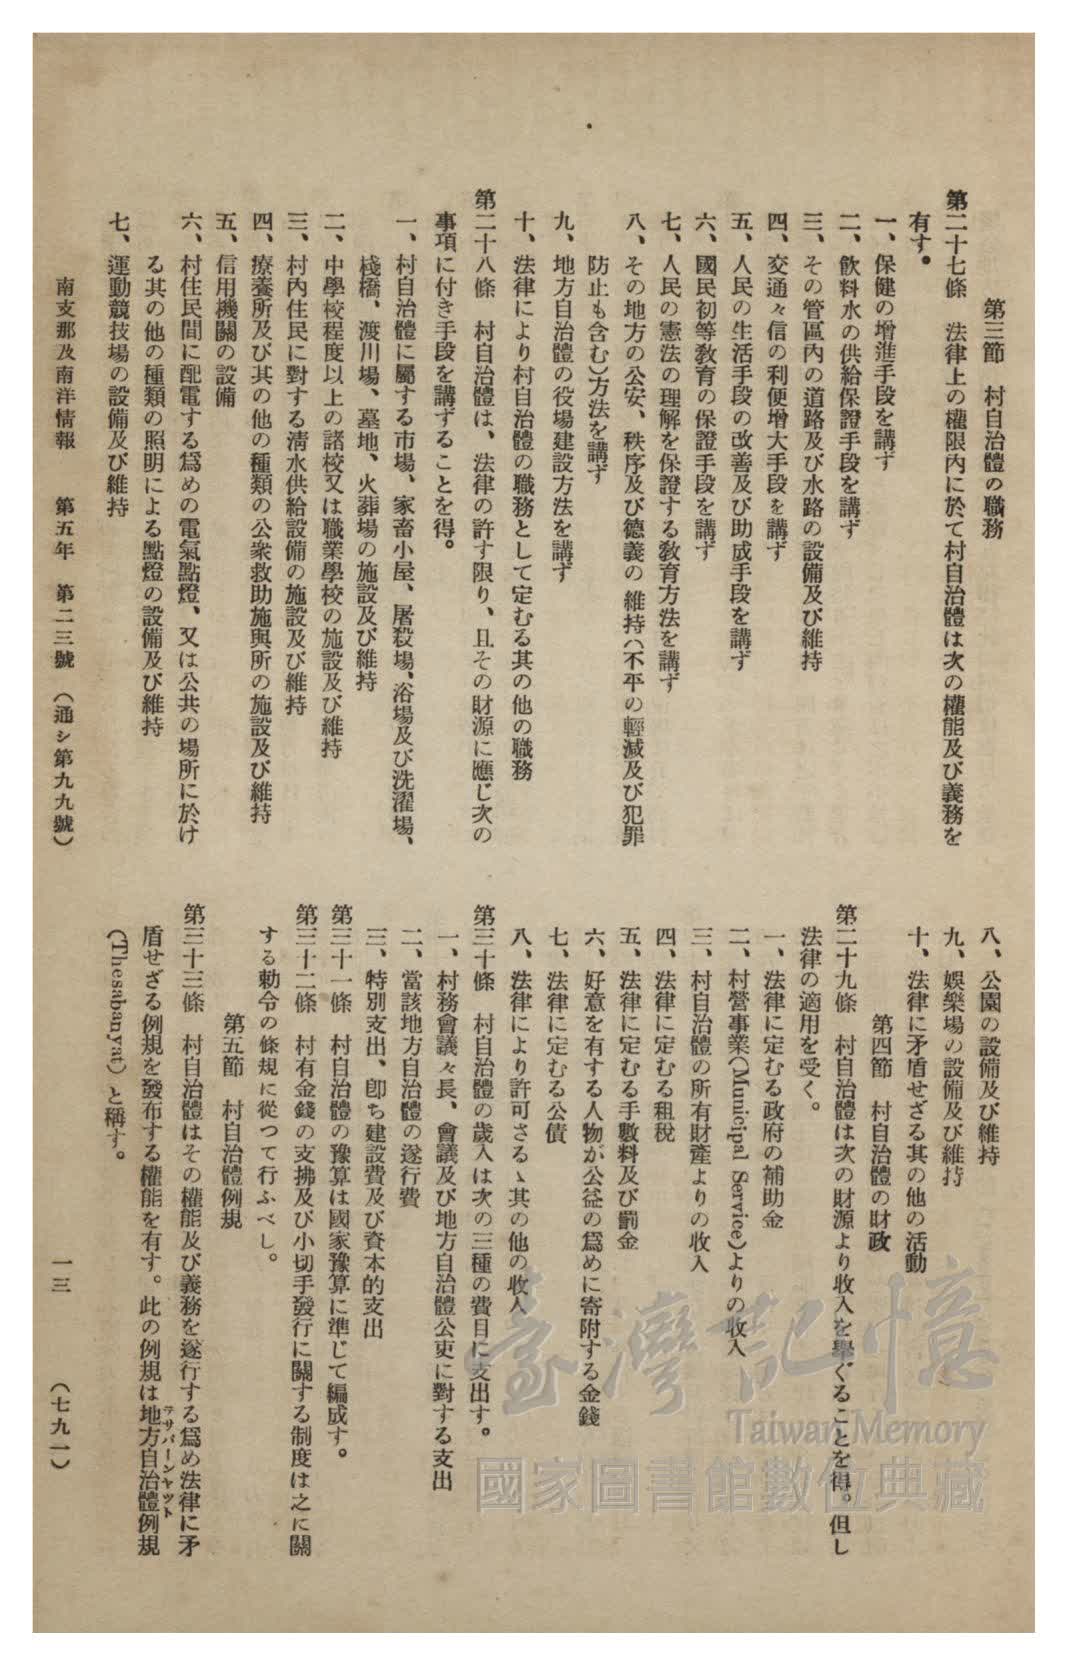 第三節　村自治體の職務
第二十七條　法律上の權限內に於て村自治體は次の權能及び義務を
有す。
一、保健の增進手段を講ず
二、飮料水の供給保證手段を講ず
三、その管區內の道路及び水路の設備及び維持
四、交通々信の利便增大手段を講ず
五、人民の生活手段の改善及び助成手段を講ず
六、國民初等敎育の保證手段を講ず
七、人民の憲法の理解を保證する敎育方法を講ず
八、その地方の公安、秩序及び德義の維持（不平の輕減及び犯罪
防止も含む）方法を講ず
九、地方自治體の役場建設方法を講ず
十、法律により村自治體の職務として定むる其の他の職務
第二十八條　村自治體は、法律の許す限り、且その財源に應じ次の
事項に付き手段を講ずることを得。
一、村自治體に屬する市場、家畜小屋、屠殺場、浴場及び洗濯場、
棧橋、渡川場、墓地、火葬場の施設及び維持
二、中學校程度以上の諸校又は職業學校の施設及び維持
三、村內住民に對する淸水供給設備の施設及び維持
四、療養所及び其の他の種類の公衆救助施與所の施設及び維持
五、信用機關の設備
六、村住民間に配電する爲めの電氣點燈、又は公共の場所に於け
る其の他の種類の照明による點燈の設備及び維持
七、運動競技場の設備及び維持
八、公園の設備及び維持
九、娛樂場の設備及び維持
十、法律に矛盾せざる其の他の活動
第四節　村自治體の財政
第二十九條　村自治體は次の財源より收入を擧ぐることを得。但し
法律の適用を受く。
一、法律に定むる政府の補助金
二、村營事業（Municipal Service）よりの收入
三、村自治體の所有財產よりの收入
四、法律に定むる租稅
五、法律に定むる手數料及び罰金
六、好意を有する人物が公益の爲めに寄附する金錢
七、法律に定むる公債
八、法律により許可さるゝ其の他の收入
第三十條　村自治體の歲入は次の三種の費目に支出す。
一、村務會議々長、會議及び地方自治體公吏に對する支出
二、當該地方自治體の遂行費
三、特別支出、卽ち建設費及び資本的支出
第三十一條　村自治體の豫算は國家豫算に準じて編成す。
第三十二條　村有金錢の支拂及び小切手發行に關する制度は之に關
する勅令の條規に從つて行ふべし。
第五節　村自治體例規
第三十三條　村自治體はその權能及び義務を遂行する爲め法律に矛
盾せざる例規を發布する權能を有す。此の例規は地方自治體例規
テサバーンヤット
（Thesabanyat）と稱す。
南支那及南洋情報　第五年　第二三號　（通シ第九九號）
一三
（七九一）
臺灣記憶
Taiwan Memory
國家圖書館數位典藏